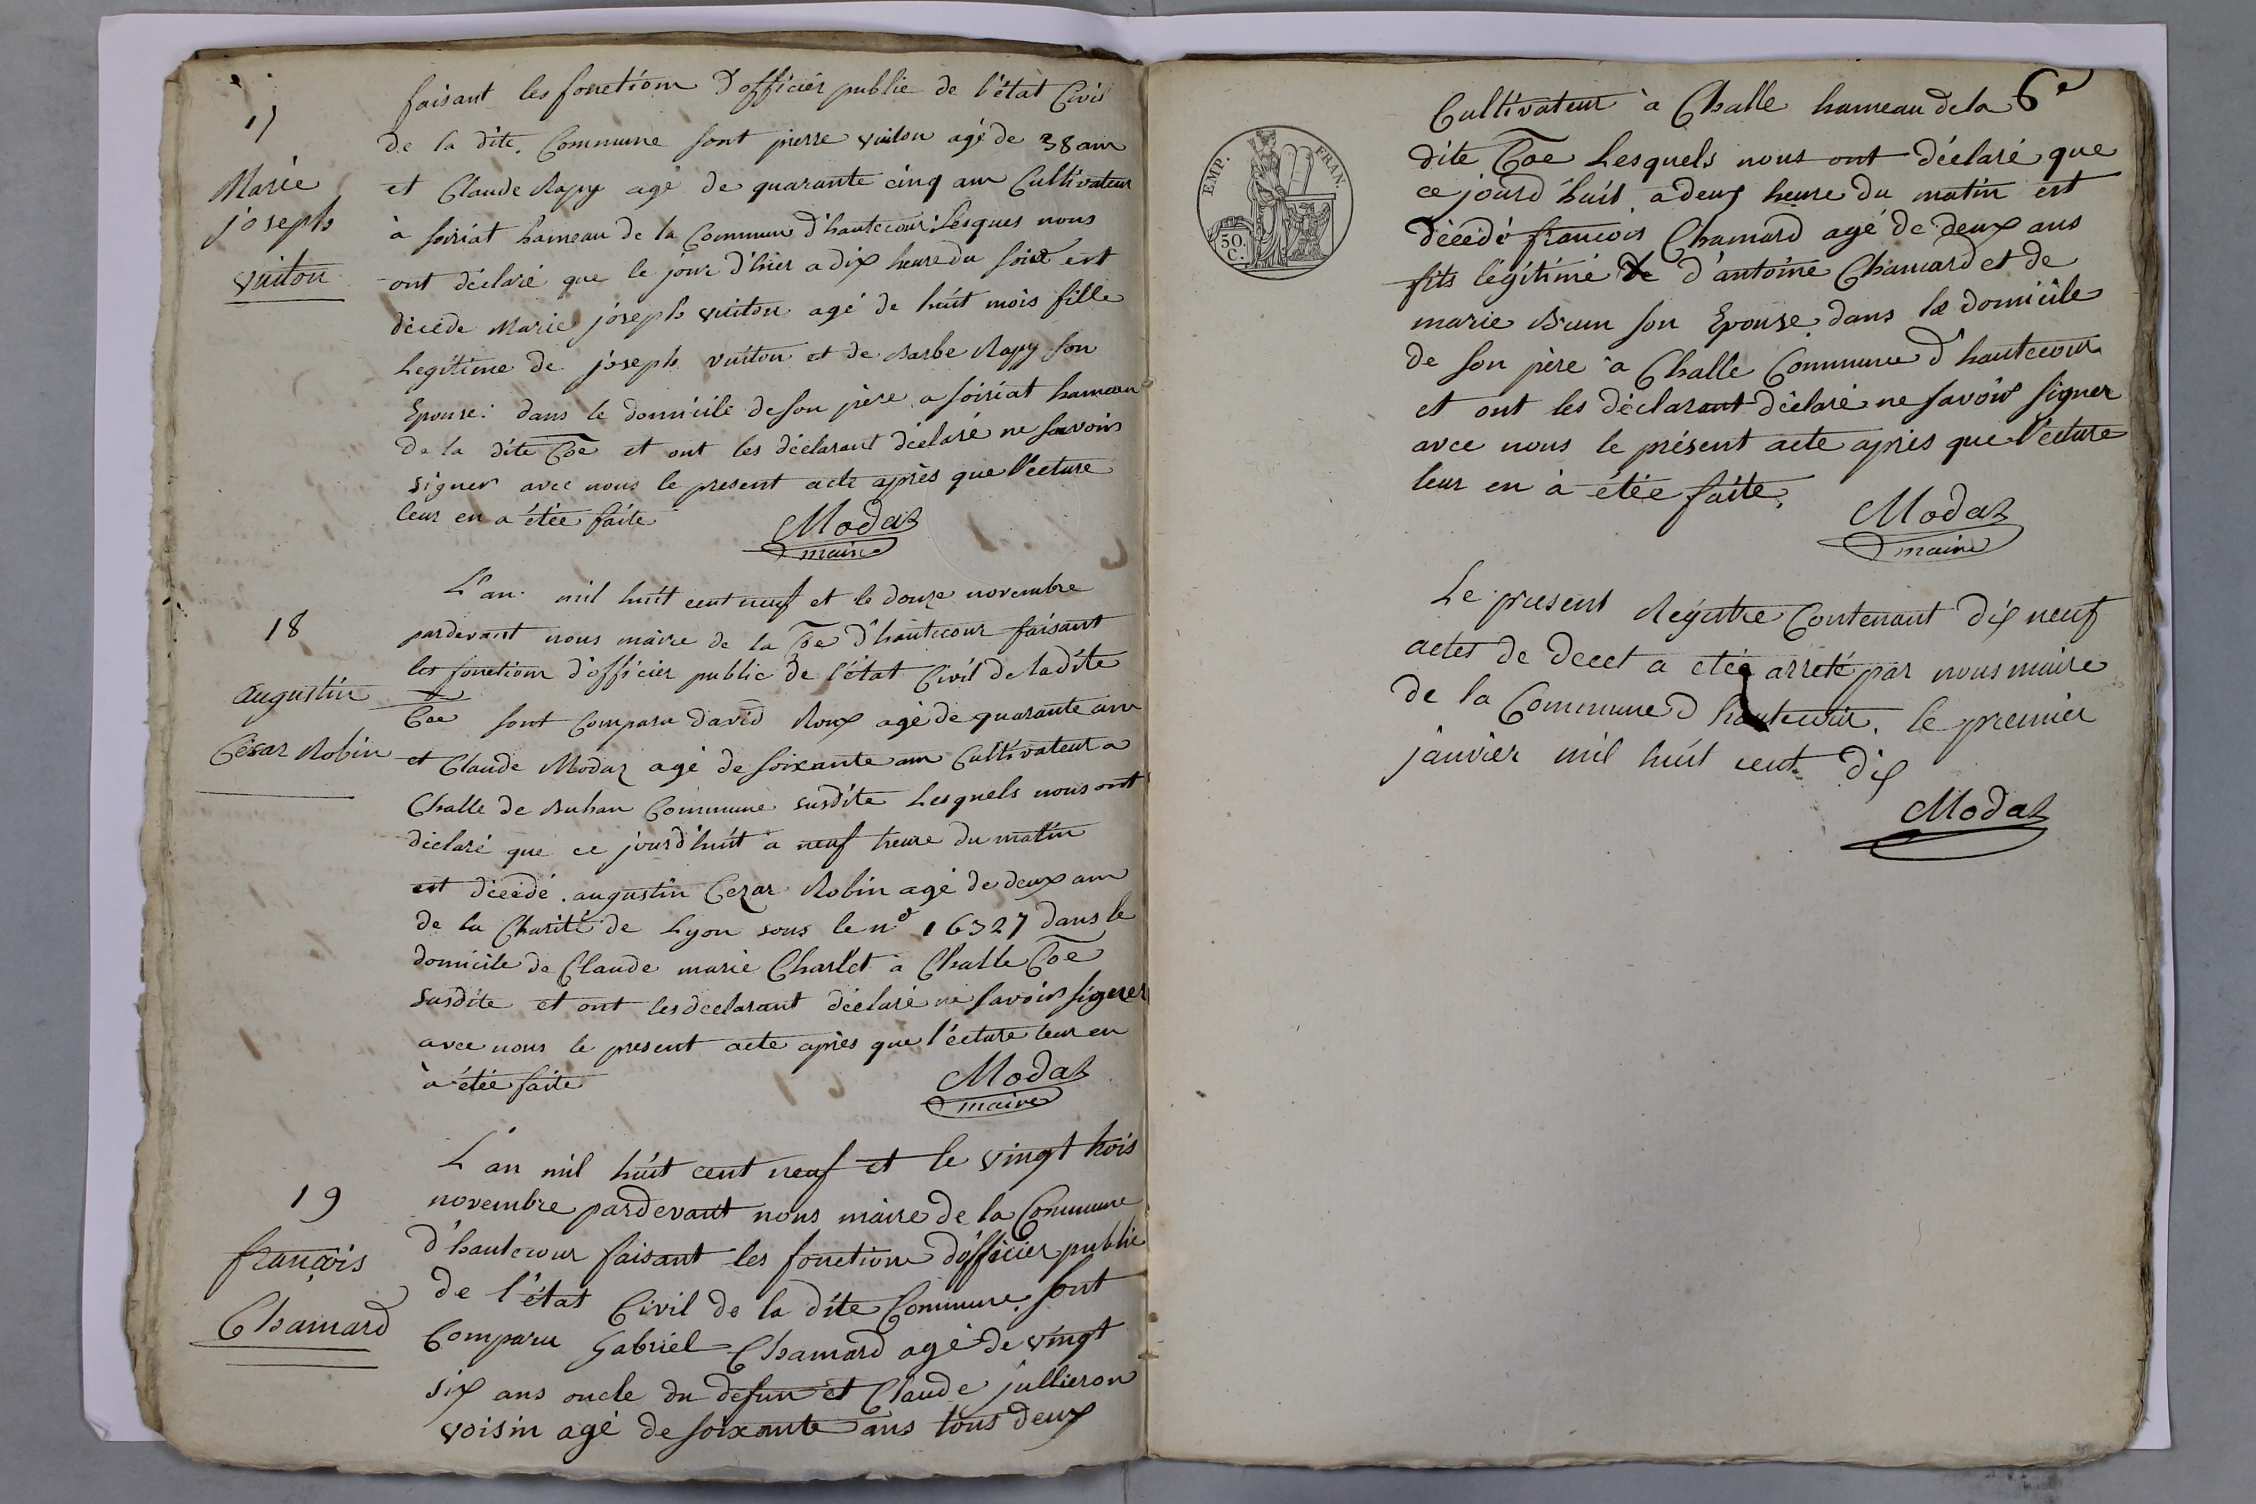 17
Marie
joseph
vuiton
faisant les fonctions d'officiér public de l'état Civil
de la dite Commune sont pierre vuiton agé de 38 ans
et Claude Rapy agé de quarante cinq ans Cultivateur
à soiriat hameau de la Commune d'hautecour Lesques nous
ont déclaré que le jour d'hier a dix heure du soire est
décédé Marie joseph vuiton agé de huit mois fille
Legitime de joseph vuiton et de Barbe Rapy son
Epouse dans le domicile de son père a soiriat hameau
de la dite Coe et ont les déclarant déclaré ne savoir
signer avec nous le present acte après que l'ecture
leur en a étée faite
Modaz
maire
18
augustin
César Robin
L'an mil huit cent neuf et le douze novembre
pardevant nous maire de la Coe d'hautecour faisant
les fonctions d'officiér public de l'état Civil de la dite
Coe sont Comparu david Roux agé de quarante ans
et Claude Modaz agé de soixante ans Cultivateur a
Challe de Buhan Commune susdite Lesquels nous ont
déclaré que ce jourd'huit à neuf heure du matin
est décédé augustin Cezar Robin agé de deux ans
de la Charité de Lyon sous le no 16327 dans le
domicile de Claude marie Charlet a Challe Coe
susdite et ont les declarant déclaré ne savoir signer
avec nous le present acte après que l'ecture leur en
à étée faite
Modaz
maire
19
françois
Chamard
L'an mil huit cent neuf et le vingt trois
novembre pardevant nous maire de la Commune
d'hautecour faisant les fonctions d'officier public
de l'état Civil de la dite Commune sont
Comparu Gabriel Chamard agé de vingt
six ans oncle du defun et Claude jullieron
voisin agé de soixante ans tous deux
6e
EMP. FRAN.
50.
C.
Cultivateur à Challe hameau de la
dite Coe Lesquels nous ont déclaré que
ce jourd'huit a deux heure du matin est
décédé francois Chamard agé de deux ans
fils légitimé de d'antoine Chamard et de
marie Brun son Epouse dans le domicile
de son père à Challe Commune d'hautecour
et ont les déclarant déclaré ne savoir signer
avec nous le présent acte après que l'ecture
leur en à étée faite.
Modaz
maire
Le present Registre Contenant dix neuf
actes de decet a etée arreté par nous maire
de la Commune d hautecour. le premier
janvier mil huit cent dix
Modaz